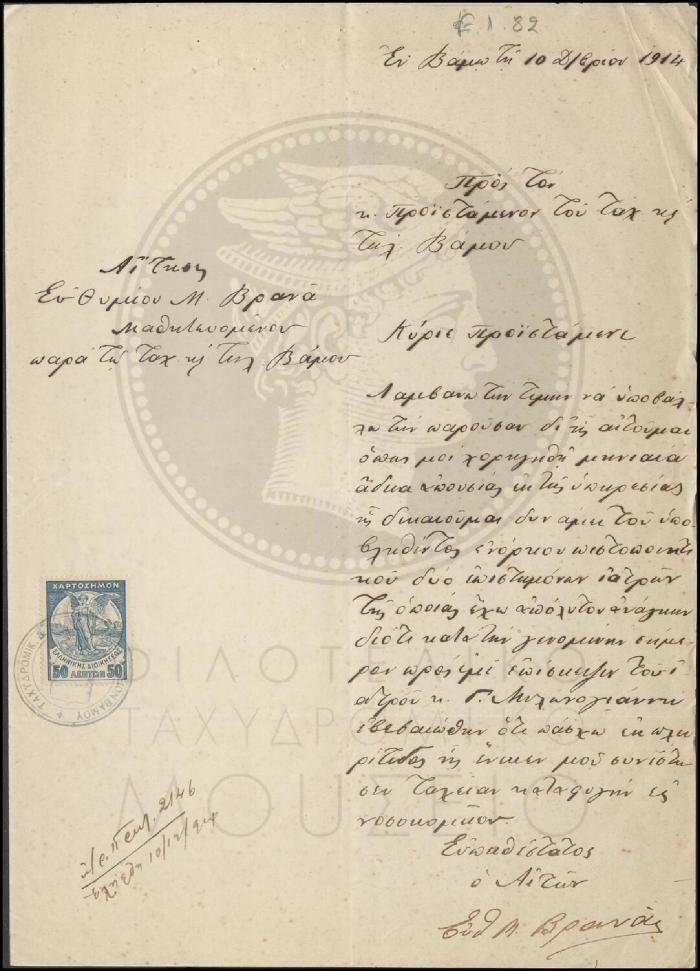 F.1.82
Ἐν Βάμῳ τῇ 10 Δ/βρίου 1914
Πρὸς τὸν
κ. Προϊστάμενον τοῦ Ταχ κῃ
Τηλ. Βάμου
Αἴτησις
Εὐθυμίου Μ. Βρανᾶ
Μαθητευομένου
παρὰ τῷ Ταχ. κῃ Τηλ. Βάμου
Κύριε Προϊστάμενε
Λαμβάνω τὴν τιμὴν νὰ ὑποβάλ-
λω τὴν παροῦσαν δι' ἧς αἰτοῦμαι
ὅπως μοι χορηγηθῇ μηνιαία
ἄδεια ἀπουσίας ἐκ τῆς ὑπηρεσίας
ἧς δικαιοῦμαι δυνάμει τοῦ ὑπο
βληθέντος ἐνόρκου πιστοποιητι
κοῦ δύο ἐπιστημόνων ἰατρῶν
τῆς ὁποίας ἔχω ἀπόλυτον ἀνάγκην
διότι κατὰ τὴν γενομένην σήμε
ρον πρὸς ἐμὲ ἐπίσκεψιν τοῦ ἰ
ατροῦ κ. Γ. Μυλωνογιάννη
ἐβεβαιώθην ὅτι πάσχω ἐκ πλευ
ρίτιδος ἧς ἕνεκεν μοῦ συνέστη
σεν ταχεῖαν καταφυγὴν εἰς
νοσοκομεῖον.
Εὐπειθέστατος
ὁ Αἰτῶν
Εὐθ Μ. Βρανᾶς
ΧΑΡΤΟΣΗΜΟΝ
ΕΛΛΗΝΙΚΗΣ ΔΙΟΙΚΗΣΕΩΣ
50 ΛΕΠΤΩΝ 50
ΤΑΧΥΔΡΟΜΙΚ
ΒΑΜΟΥ
2146
10/12/914
ΦΙΛΟΤΕΛΙΚΟ
ΤΑΧΥΔΡΟΜΙΚΟ
ΜΟΥΣΕΙΟ